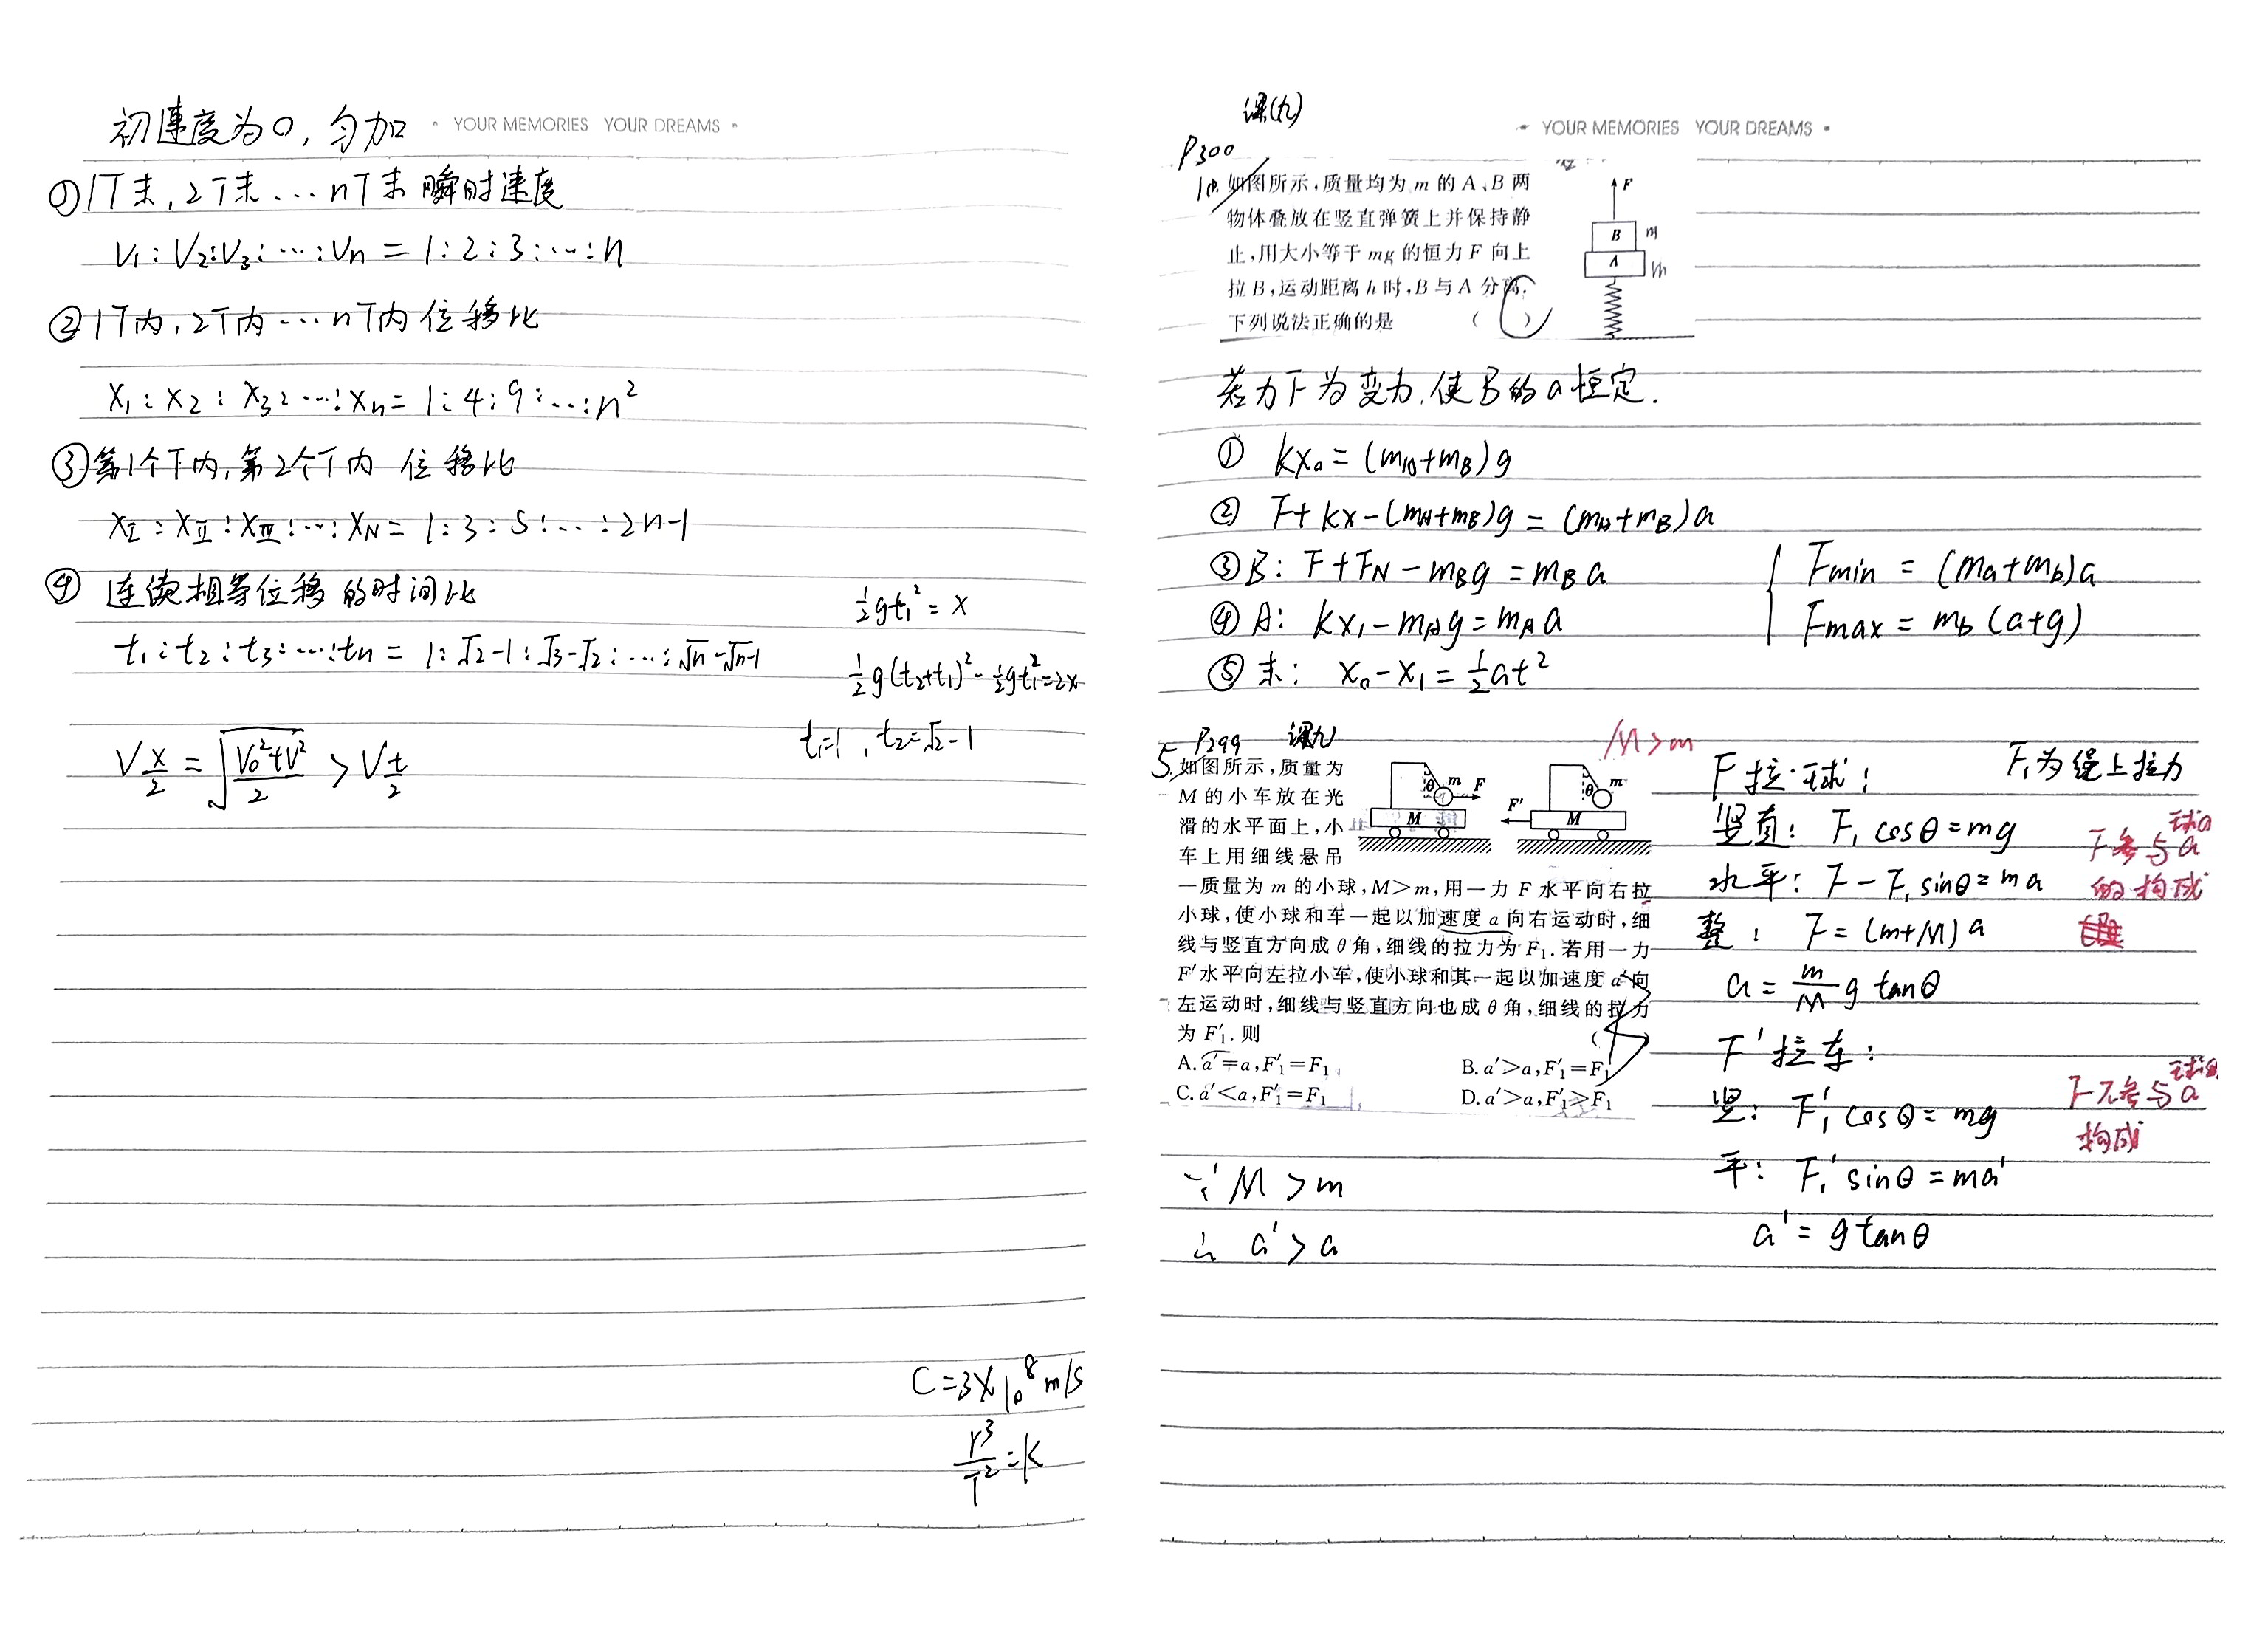 初速度为0，匀加
YOUR MEMORIES YOUR DREAMS
①1T末，2T末…nT末 瞬时速度
V₁:V₂:V₃:…:Vn = 1:2:3:…:n
②1T内，2T内…nT内 位移比
x₁:x₂:x₃:…:xn = 1:4:9:…:n²
③第1个T内，第2个T内 位移比
xⅠ:xⅡ:xⅢ:…:xN = 1:3:5:…:2n-1
④ 连续相等位移的时间比
t₁:t₂:t₃:…:tn = 1:√2-1:√3-√2:…:√n-√n-1
½gt₁² = x
½g(t₂+t₁)² - ½gt₁² = 2x
t₁=1，t₂=√2-1
V x/2 = √((V₀²+V²)/2) > V t/2
C=3×10⁸m/s
r³/T² = k
课(九)
YOUR MEMORIES YOUR DREAMS
P300
10. 如图所示，质量均为 m 的 A、B 两
物体叠放在竖直弹簧上并保持静
止，用大小等于 mg 的恒力 F 向上
拉 B，运动距离 h 时，B 与 A 分离.
下列说法正确的是 （C）
F
B m
A m
若力F为变力，使B的a恒定.
① kx₀=(mA+mB)g
② F+kx-(mA+mB)g=(mA+mB)a
③B: F+FN-mBg=mBa
④A: kx₁-mAg=mAa
⑤末: x₀-x₁=½at²
Fmin = (ma+mb)a
Fmax = mb(a+g)
P299 课九
M>m
5. 如图所示，质量为
M 的小车放在光
滑的水平面上，小
车上用细线悬吊
一质量为 m 的小球，M>m，用一力 F 水平向右拉
小球，使小球和车一起以加速度 a 向右运动时，细
线与竖直方向成 θ 角，细线的拉力为 F₁. 若用一力
F′水平向左拉小车，使小球和其一起以加速度 a′向
左运动时，细线与竖直方向也成 θ 角，细线的拉力
为 F′₁. 则 （ ）
A. a′=a，F′₁=F₁ B. a′>a，F′₁=F₁
C. a′<a，F′₁=F₁ D. a′>a，F′₁>F₁
θ m F
M
F′ θ m
M
F拉球: F₁为绳上拉力
竖直: F₁cosθ=mg
水平: F-F₁sinθ=ma
整: F=(m+M)a
a=m/M g tanθ
F参与球的a
的构成
F′拉车:
竖: F₁′cosθ=mg
平: F₁′sinθ=ma′
a′=g tanθ
F不参与球的a
构成
∵ M>m
∴ a′>a